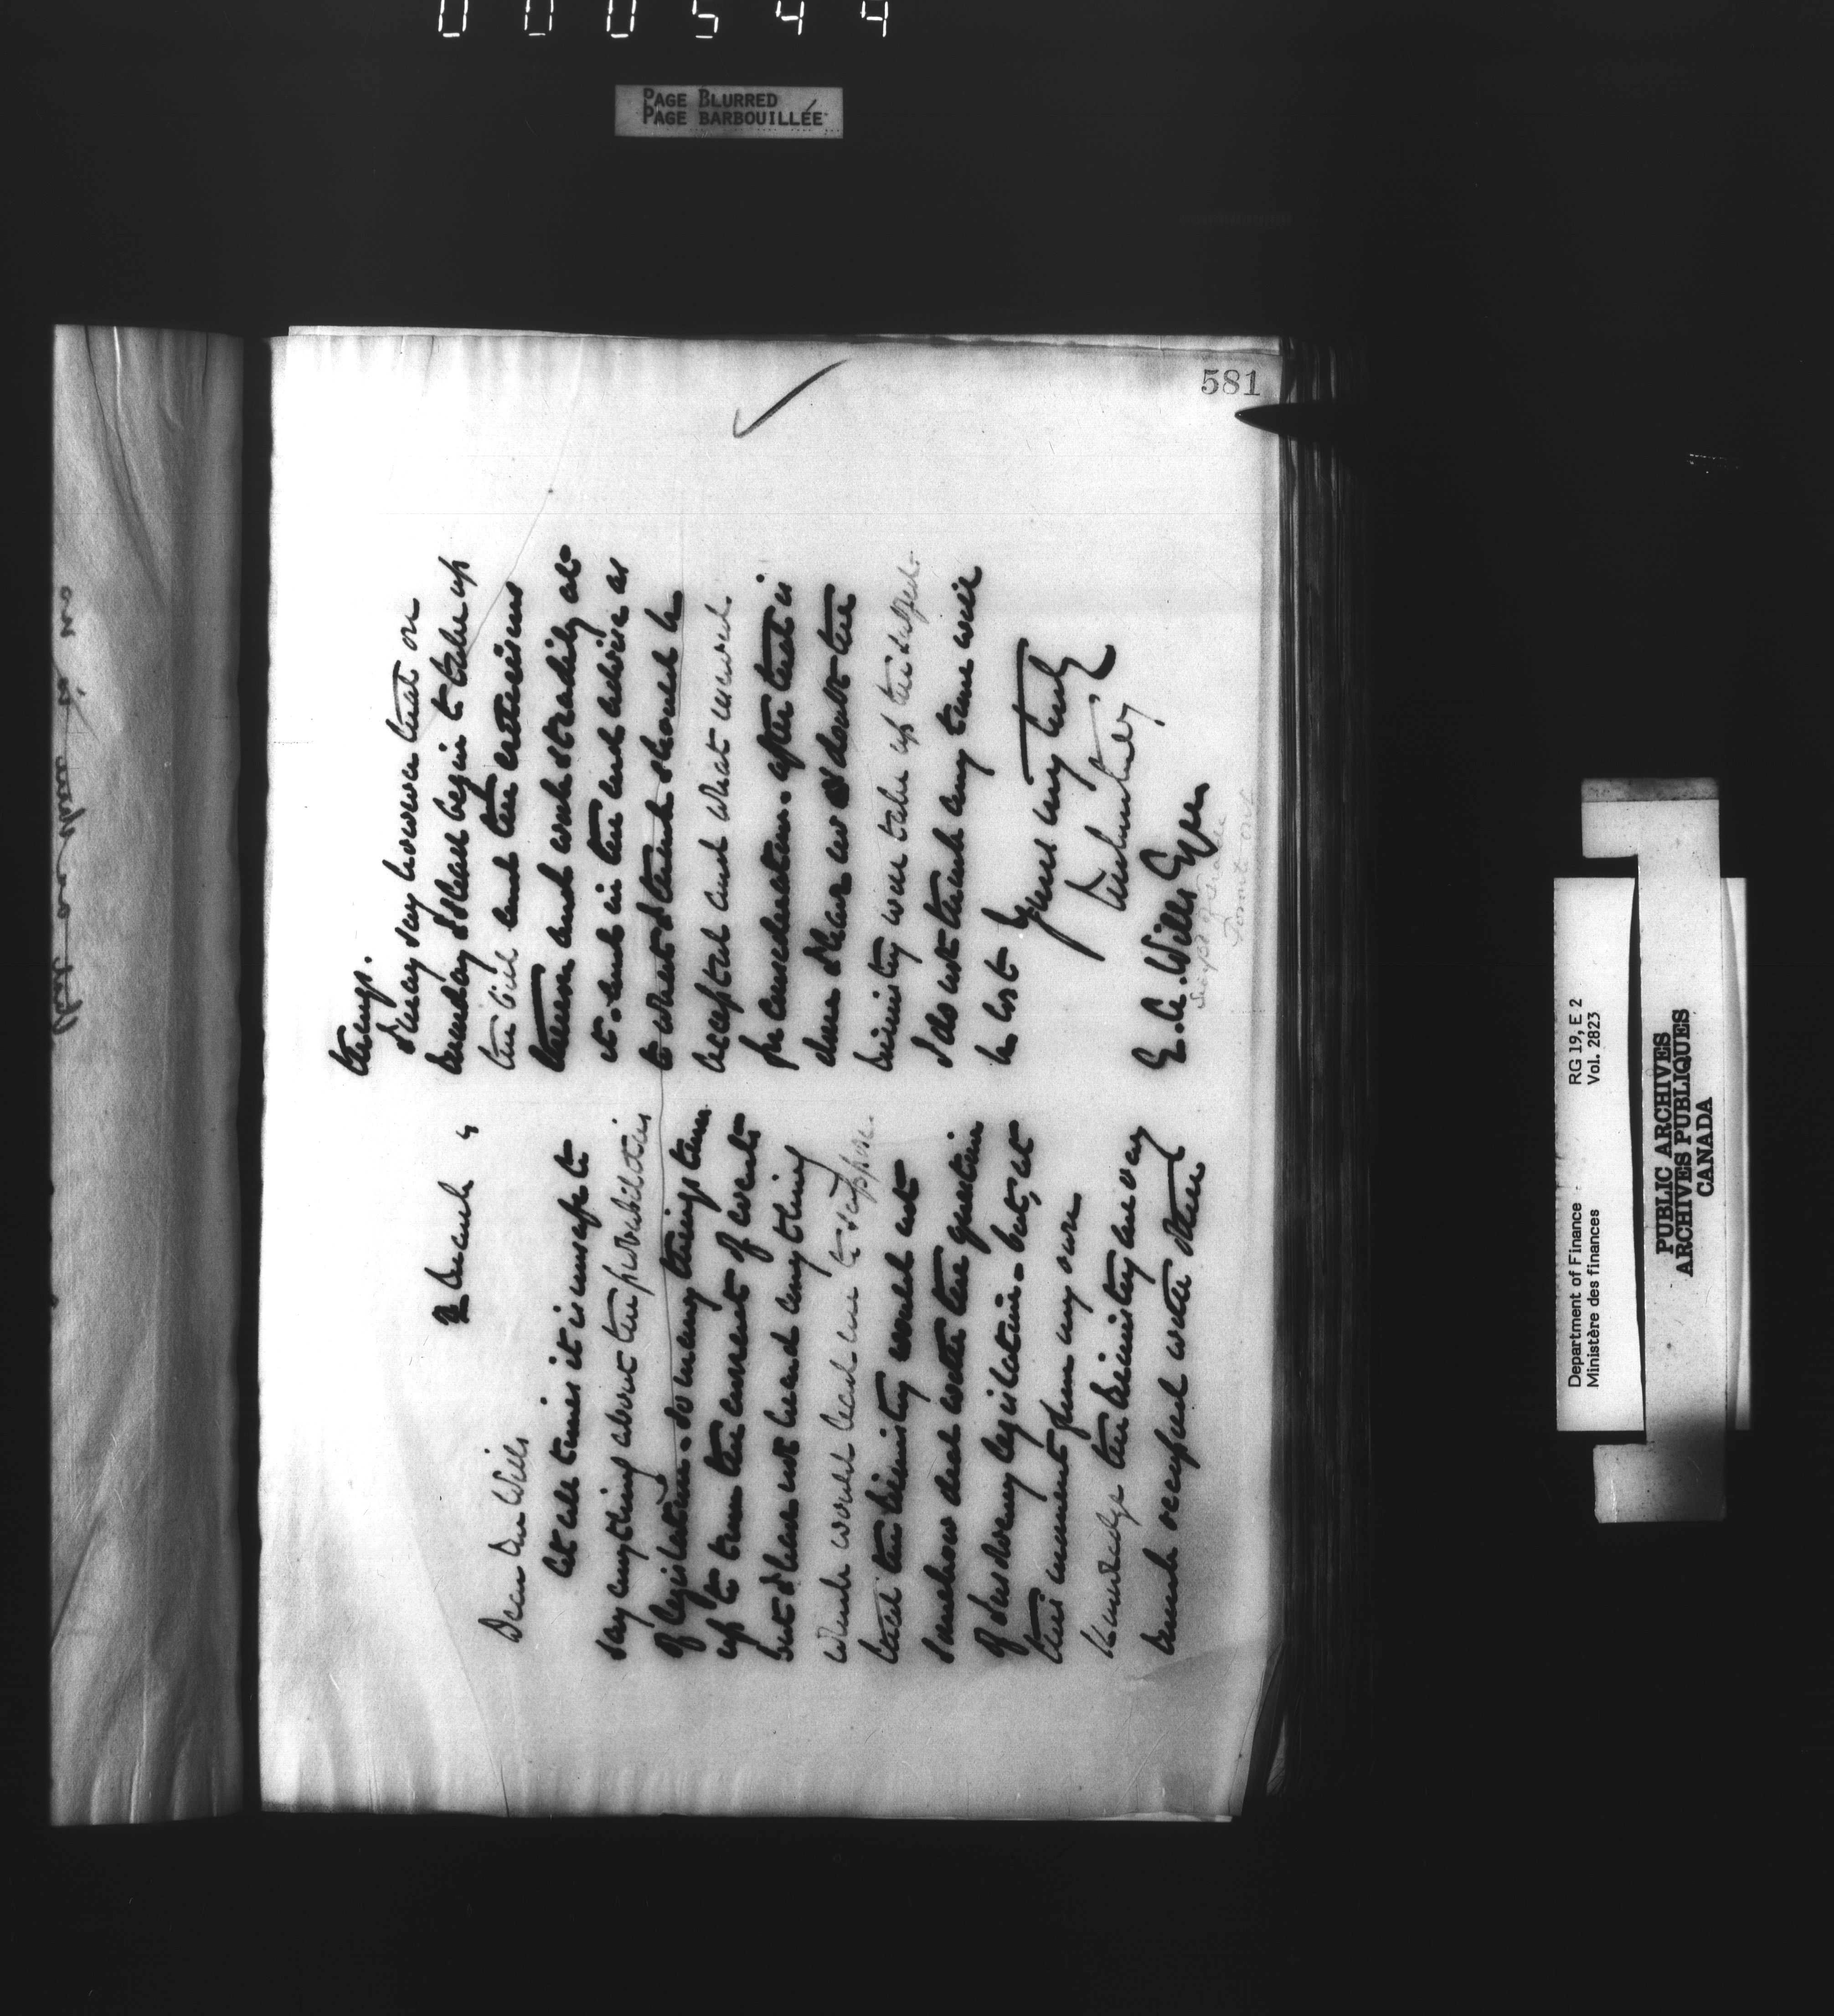 000544
PAGE BLURRED
PAGE BARBOUILLÉE
581
Dear Mr Wills
At all times it is unsafe to
say anything about the probabilities
of legislation. So many things turn
up to turn the current of events
but I have not heard anything
which would lead me to suppose
that the Ministry would not
somehow deal with the question
of Insolvency legislation. but, at
this moment from my own
knowledge the Ministry are very
much occupied with other
things.
I may say however that on
Monday I shall begin to take up
the bill and the criticisms
taken and work steadily at
it. And in the end advise as
to what I think should be
accepted and what moved.
for consideration. After that is
done I have no doubt the
Ministry will take up the subject.
I do not think any time will
be lost
Yours very truly
E. A. Wills Esqre
Secy Bd of Trade
Toronto Ont
Department of Finance RG 19, E 2
Ministère des finances Vol. 2823
PUBLIC ARCHIVES
ARCHIVES PUBLIQUES
CANADA